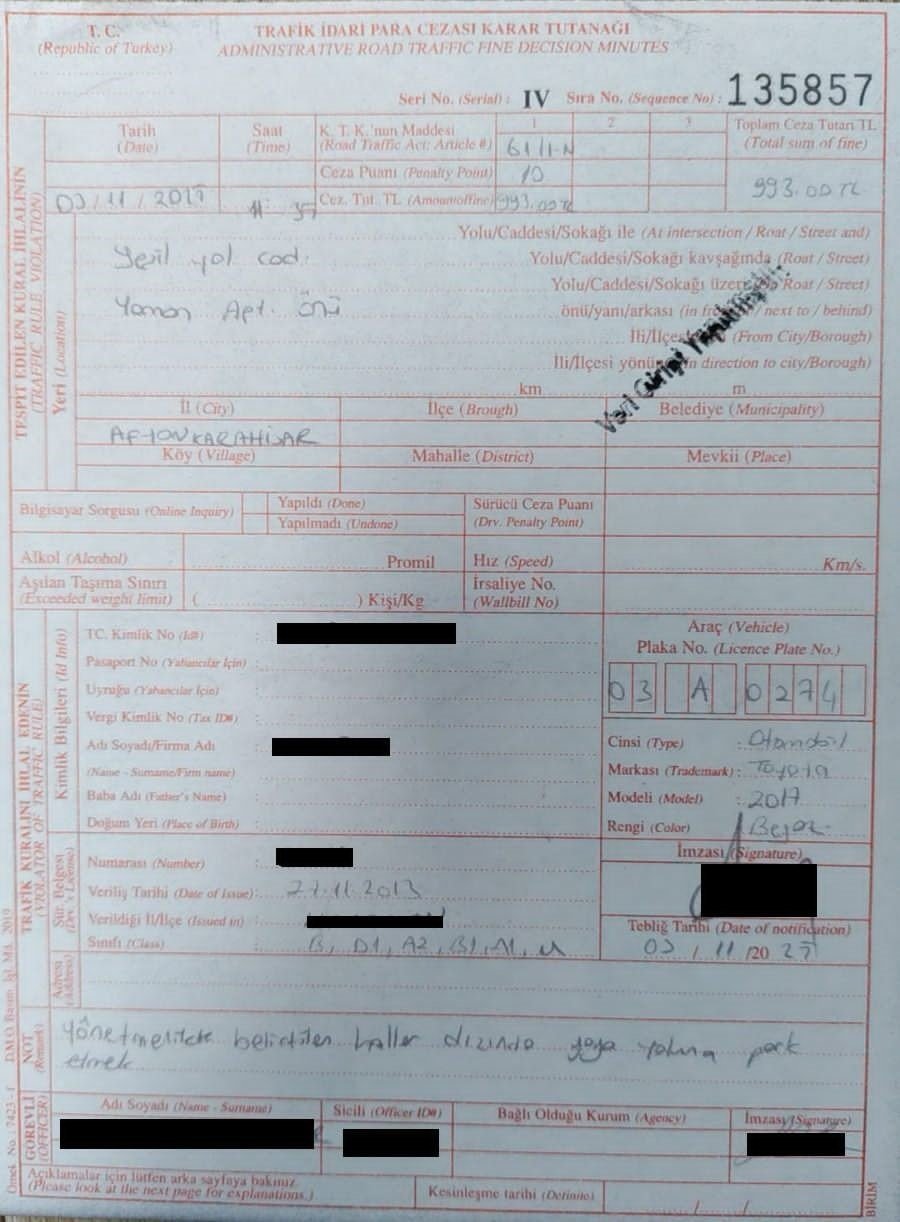 T. C.
(Republic of Turkey)
TRAFİK İDARİ PARA CEZASI KARAR TUTANAĞI
ADMINISTRATIVE ROAD TRAFFIC FINE DECISION MINUTES
Seri No. (Serial) : IV Sıra No. (Sequence No) : 135857
TESPİT EDİLEN KURAL İHLALININ
(TRAFFIC RULE VIOLATION)
Tarih
(Date)
Saat
(Time)
K. T. K.'nun Maddesi
(Road Traffic Act: Article #)
1 2 3
61/1-N
Toplam Ceza Tutarı TL
(Total sum of fine)
Ceza Puanı (Penalty Point) 10
03/11/2025
Cez. Tut. TL (Amountoffine) 993.00 TL
993.00 TL
Yeri (Location)
Yolu/Caddesi/Sokağı ile (At intersection / Roat / Street and)
Yeşil yol cad.
Yolu/Caddesi/Sokağı kavşağında (Roat / Street)
Yolu/Caddesi/Sokağı üzere Roat / Street)
Yaman Apt. önü
önü/yanı/arkası (in / next to / behind)
İli/İlçes (From City/Borough)
İli/İlçesi yönü in direction to city/Borough)
Veri Girişi Yapılmıştır.
km m
İl (City) İlçe (Brough) Belediye (Municipality)
AFYONKARAHİSAR
Köy (Village) Mahalle (District) Mevkii (Place)
Bilgisayar Sorgusu (Online Inquiry)
Yapıldı (Done)
Yapılmadı (Undone)
Sürücü Ceza Puanı
(Drv. Penalty Point)
Alkol (Alcohol) Promil Hız (Speed) Km/s.
Aşılan Taşıma Sınırı
(Exceeded weight limit) ( ) Kişi/Kg
İrsaliye No.
(Wallbill No)
TRAFİK KURALINI İHLAL EDENİN
(VIOLATOR OF TRAFFIC RULE)
Kimlik Bilgileri (Id Info)
TC. Kimlik No (Id#) :
Pasaport No (Yabancılar İçin) :
Uyruğu (Yabancılar İçin) :
Vergi Kimlik No (Tax ID#) :
Adı Soyadı/Firma Adı :
(Name - Surname/Firm name) :
Baba Adı (Father's Name) :
Doğum Yeri (Place of Birth) :
Araç (Vehicle)
Plaka No. (Licence Plate No.)
03 A 0274
Cinsi (Type) : Otomobil
Markası (Trademark) : Toyota
Modeli (Model) : 2017
Rengi (Color) : Beyaz
Sür. Belgesi
(Drv.'s Licence)
Numarası (Number) :
Veriliş Tarihi (Date of Issue) : 27.11.2013
Verildiği İl/İlçe (Issued in) :
Sınıfı (Class) : B, D1, A2, B1, A1, M
İmzası (Signature)
Tebliğ Tarihi (Date of notification)
03 / 11 /20 25
Adresi
(Address)
NOT
(Remark)
Yönetmelikte belirtilen haller dışında yaya yoluna park
etmek
GÖREVLİ
(OFFICER)
Adı Soyadı (Name - Surname) Sicili (Officer ID#) Bağlı Olduğu Kurum (Agency) İmzası (Signature)
Açıklamalar için lütfen arka sayfaya bakınız
(Please look at the next page for explanations.)
Kesinleşme tarihi (Definite) / /
BİRİM
Örnek No. : 7423 - f DMO Basım. İşl. Md. 2019